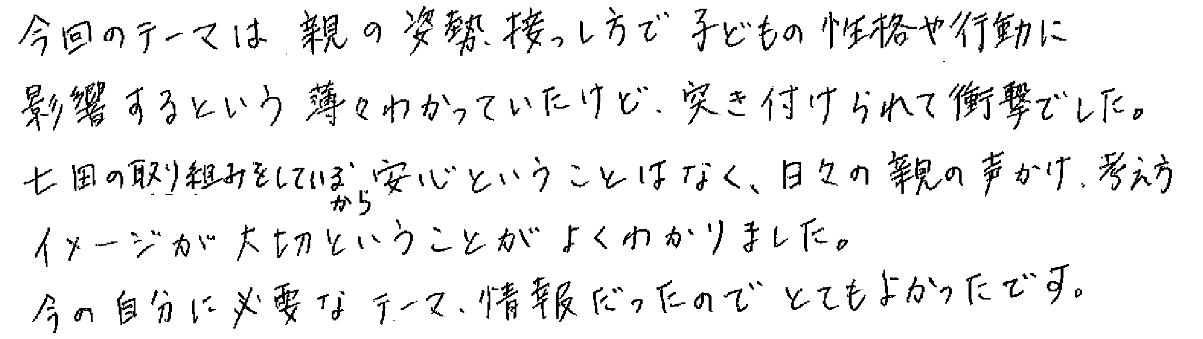 今回のテーマは親の姿勢、接っし方で子どもの性格や行動に
影響するという薄々わかっていたけど、突き付けられて衝撃でした。
七田の取り組みをしているから安心ということはなく、日々の親の声かけ、考え方
イメージが大切ということがよくわかりました。
今の自分に必要なテーマ、情報だったのでとてもよかったです。